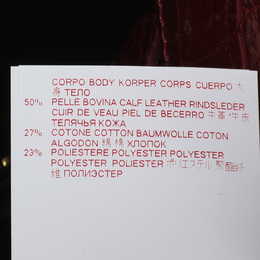 CORPO BODY KORPER CORPS CUERPO 大
身 ТЕЛО
50% PELLE BOVINA CALF LEATHER RINDSLEDER
CUIR DE VEAU PIEL DE BECERRO 牛革 牛皮
ТЕЛЯЧЬЯ КОЖА
27% COTONE COTTON BAUMWOLLE COTON
ALGODON 綿 棉 ХЛОПОК
23% POLIESTERE POLYESTER POLYESTER
POLYESTER POLIESTER ポリエステル 聚酯纤
维 ПОЛИЭСТЕР